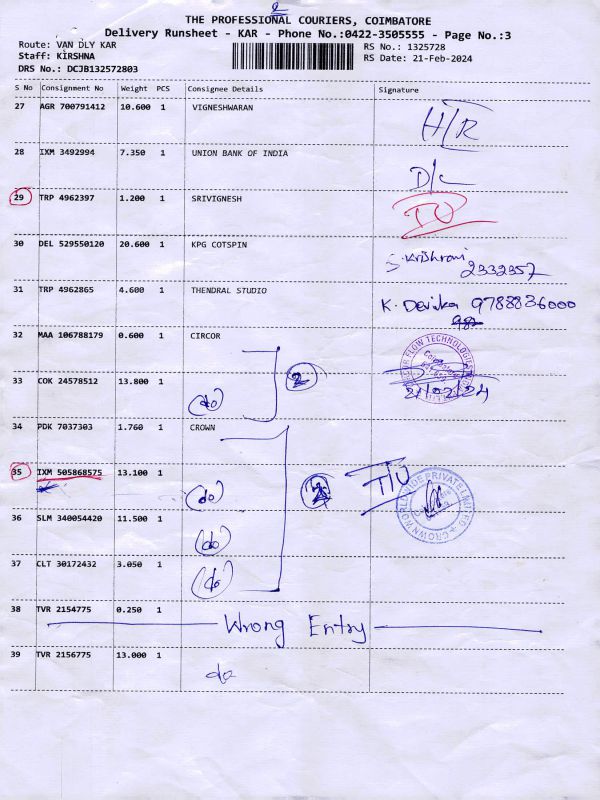 2
THE PROFESSIONAL COURIERS, COIMBATORE
Delivery Runsheet - KAR - Phone No.:0422-3505555 - Page No.:3
Route: VAN DLY KAR RS No.: 1325728
Staff: KIRSHNA RS Date: 21-Feb-2024
DRS No.: DCJB132572803
S No Consignment No Weight PCS Consignee Details Signature
27 AGR 700791412 10.600 1 VIGNESHWARAN H/R
28 IXM 3492994 7.350 1 UNION BANK OF INDIA D/c
29 TRP 4962397 1.200 1 SRIVIGNESH
30 DEL 529550120 20.600 1 KPG COTSPIN S. Krishnani
2332357
31 TRP 4962865 4.600 1 THENDRAL STUDIO K. Devika 9788836000
32 MAA 106788179 0.600 1 CIRCOR
33 COK 24578512 13.800 1 (do) 2 21/02/24
34 PDK 7037303 1.760 1 CROWN
35 IXM 505868575 13.100 1 (do) T/U
CROWN WORLDWIDE PRIVATE LIMITED
36 SLM 340054420 11.500 1 (do)
37 CLT 30172432 3.050 1 (do)
38 TVR 2154775 0.250 1
Wrong Entry
39 TVR 2156775 13.000 1 do